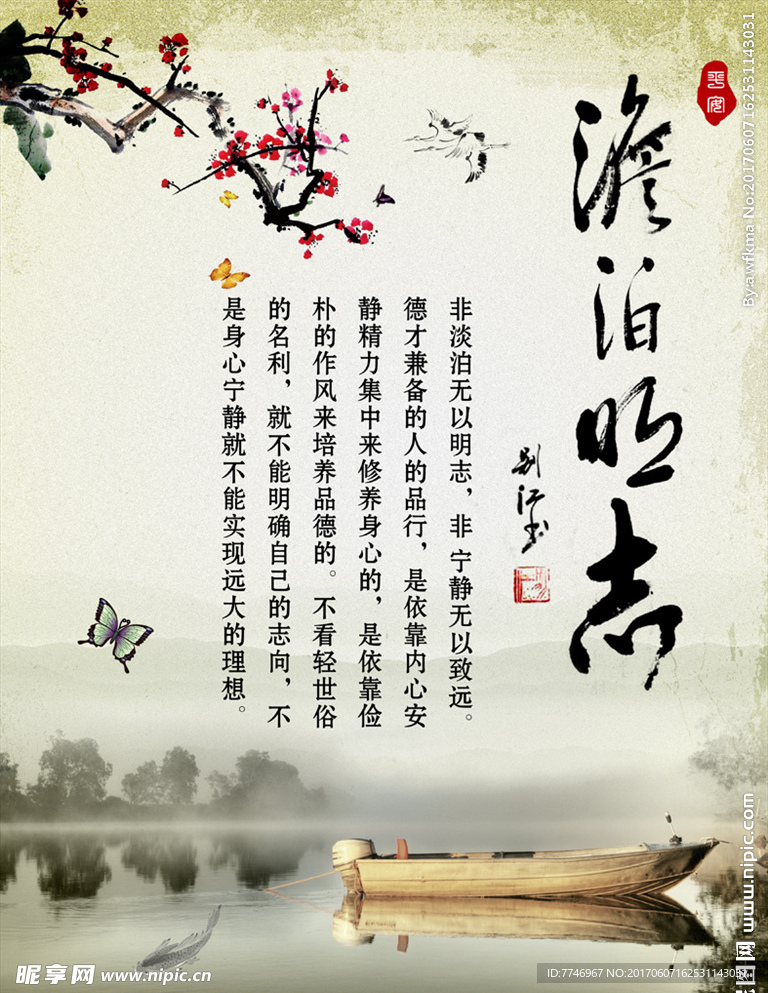 澹泊明志
平安
非淡泊无以明志，非宁静无以致远。
德才兼备的人的品行，是依靠内心安
静精力集中来修养身心的，是依靠俭
朴的作风来培养品德的。不看轻世俗
的名利，就不能明确自己的志向，不
是身心宁静就不能实现远大的理想。
By:awfkma No:20170607162531143031
www.nipic.com
昵享网 www.nipic.cn
ID:7746967 NO:20170607162531143031